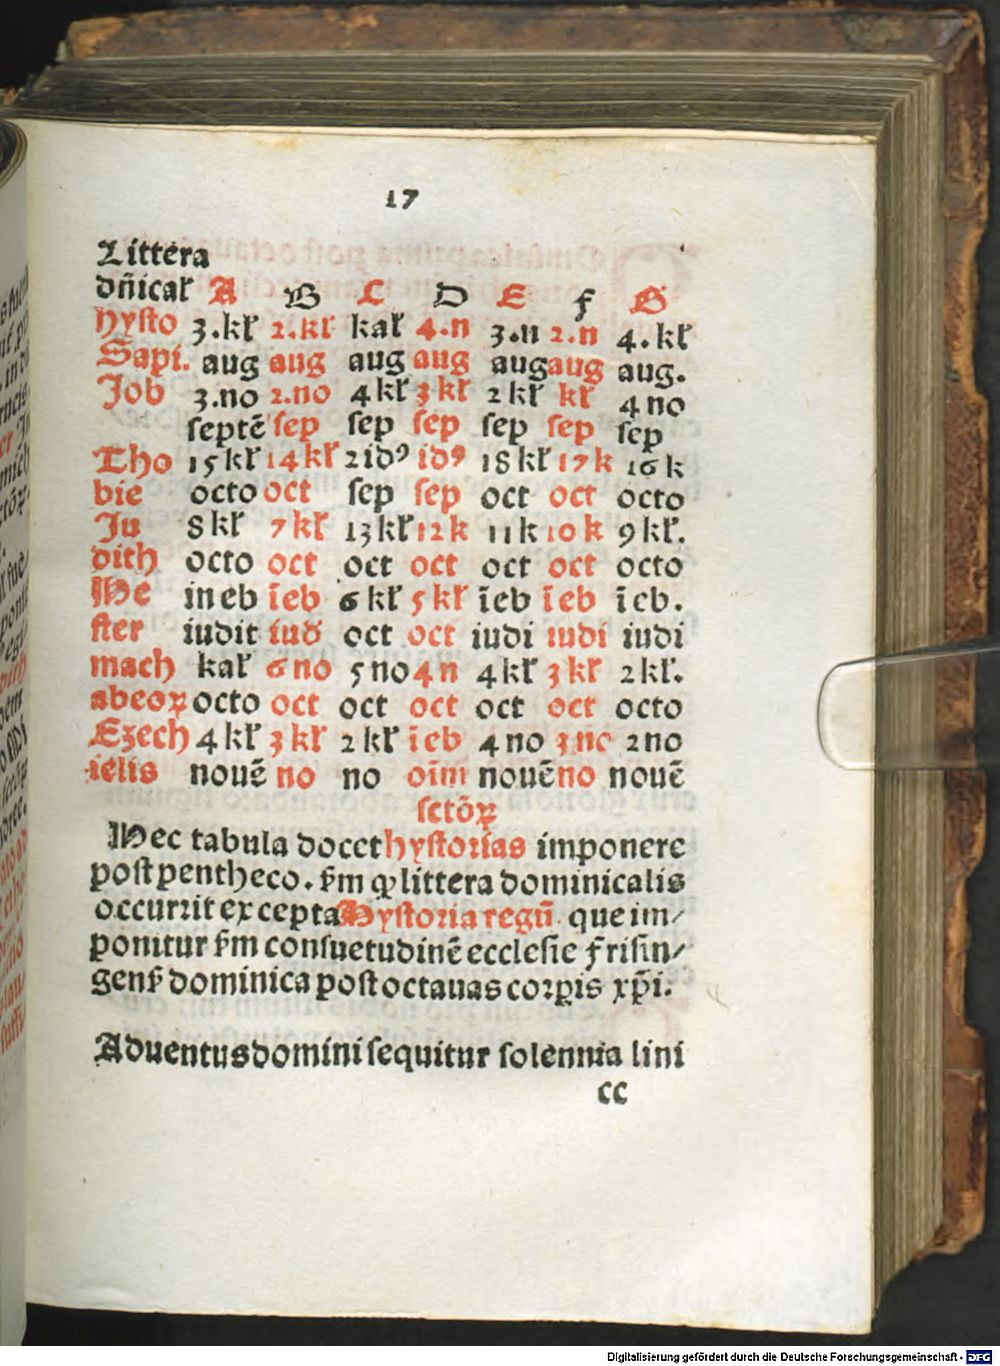 17
Littera
dñicał A B C D E f G
hysto 3.kł 2.kł kał 4.n 3.n 2.n 4.kł
Sapi. aug aug aug aug aug aug aug.
Job 3.no 2.no 4 kł 3 kł 2 kł kł 4 no
septẽ sep sep sep sep sep sep
Tho 15 kł 14 kł 2 idꝰ idꝰ 18 kł 17 k 16 k
bie octo oct sep sep oct oct octo
Ju 8 kł 7 kł 13 kł 12 k 11 k 10 k 9 kł.
dith octo oct oct oct oct oct octo
He in eb ĩeb 6 kł 5 kł ĩeb ĩeb ĩeb.
ster iudit iud oct oct iudi iudi iudi
mach kał 6 no 5 no 4 n 4 kł 3 kł 2 kł.
abeoꝝ octo oct oct oct oct oct octo
Ezech 4 kł 3 kł 2 kł ĩeb 4 no 3 no 2 no
ielis nouẽ no no oĩm nouẽ no nouẽ
sctõꝝ
Hec tabula docet hystorias imponere
post pentheco. s̃m ꝙ littera dominicalis
occurrit excepta Hystoria regũ que im⸗
ponitur s̃m consuetudinẽ ecclesie frisin⸗
gens̃ dominica post octauas corꝑis xp̃i.
Aduentus domini sequitur solennia lini
cc
Digitalisierung gefördert durch die Deutsche Forschungsgemeinschaft - DFG